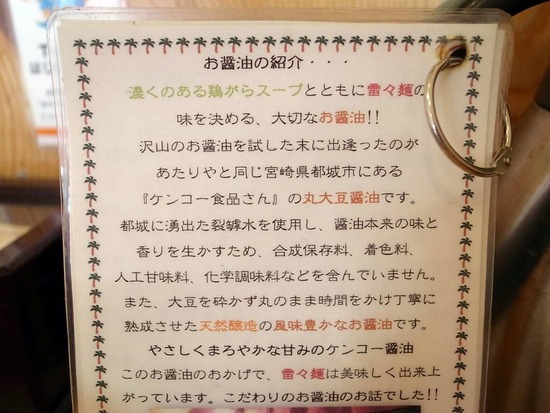 お醤油の紹介・・・
濃くのある鶏がらスープとともに雷々麺の
味を決める、大切なお醤油!!
沢山のお醤油を試した末に出逢ったのが
あたりやと同じ宮崎県都城市にある
『ケンコー食品さん』の丸大豆醤油です。
都城に湧出た裂罅水を使用し、醤油本来の味と
香りを生かすため、合成保存料、着色料、
人工甘味料、化学調味料などを含んでいません。
また、大豆を砕かず丸のまま時間をかけ丁寧に
熟成させた天然醸造の風味豊かなお醤油です。
やさしくまろやかな甘みのケンコー醤油
このお醤油のおかげで、雷々麺は美味しく出来上
がっています。こだわりのお醤油のお話でした!!